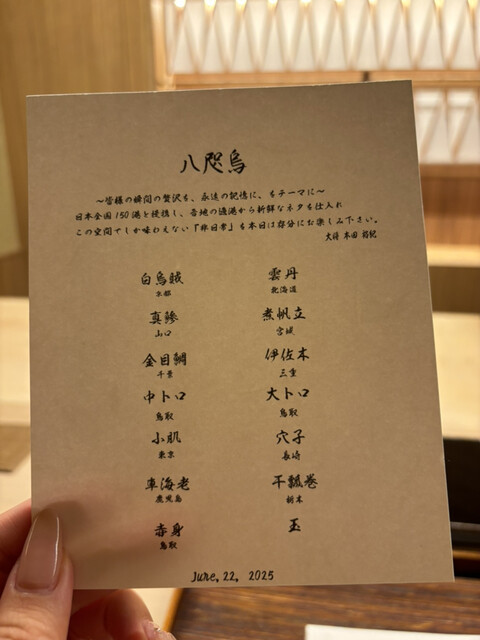 八咫烏
～皆様の瞬間の贅沢を、永遠の記憶に、をテーマに～
日本全国150港と提携し、各地の漁港から新鮮なネタを仕入れ
この空間でしか味わえない「非日常」を本日は存分にお楽しみ下さい。
大将 本田 裕紀
白烏賊
京都
真鰺
山口
金目鯛
千葉
中トロ
鳥取
小肌
東京
車海老
鹿児島
赤身
鳥取
雲丹
北海道
煮帆立
宮城
伊佐木
三重
大トロ
鳥取
穴子
長崎
干瓢巻
栃木
玉
June, 22, 2025